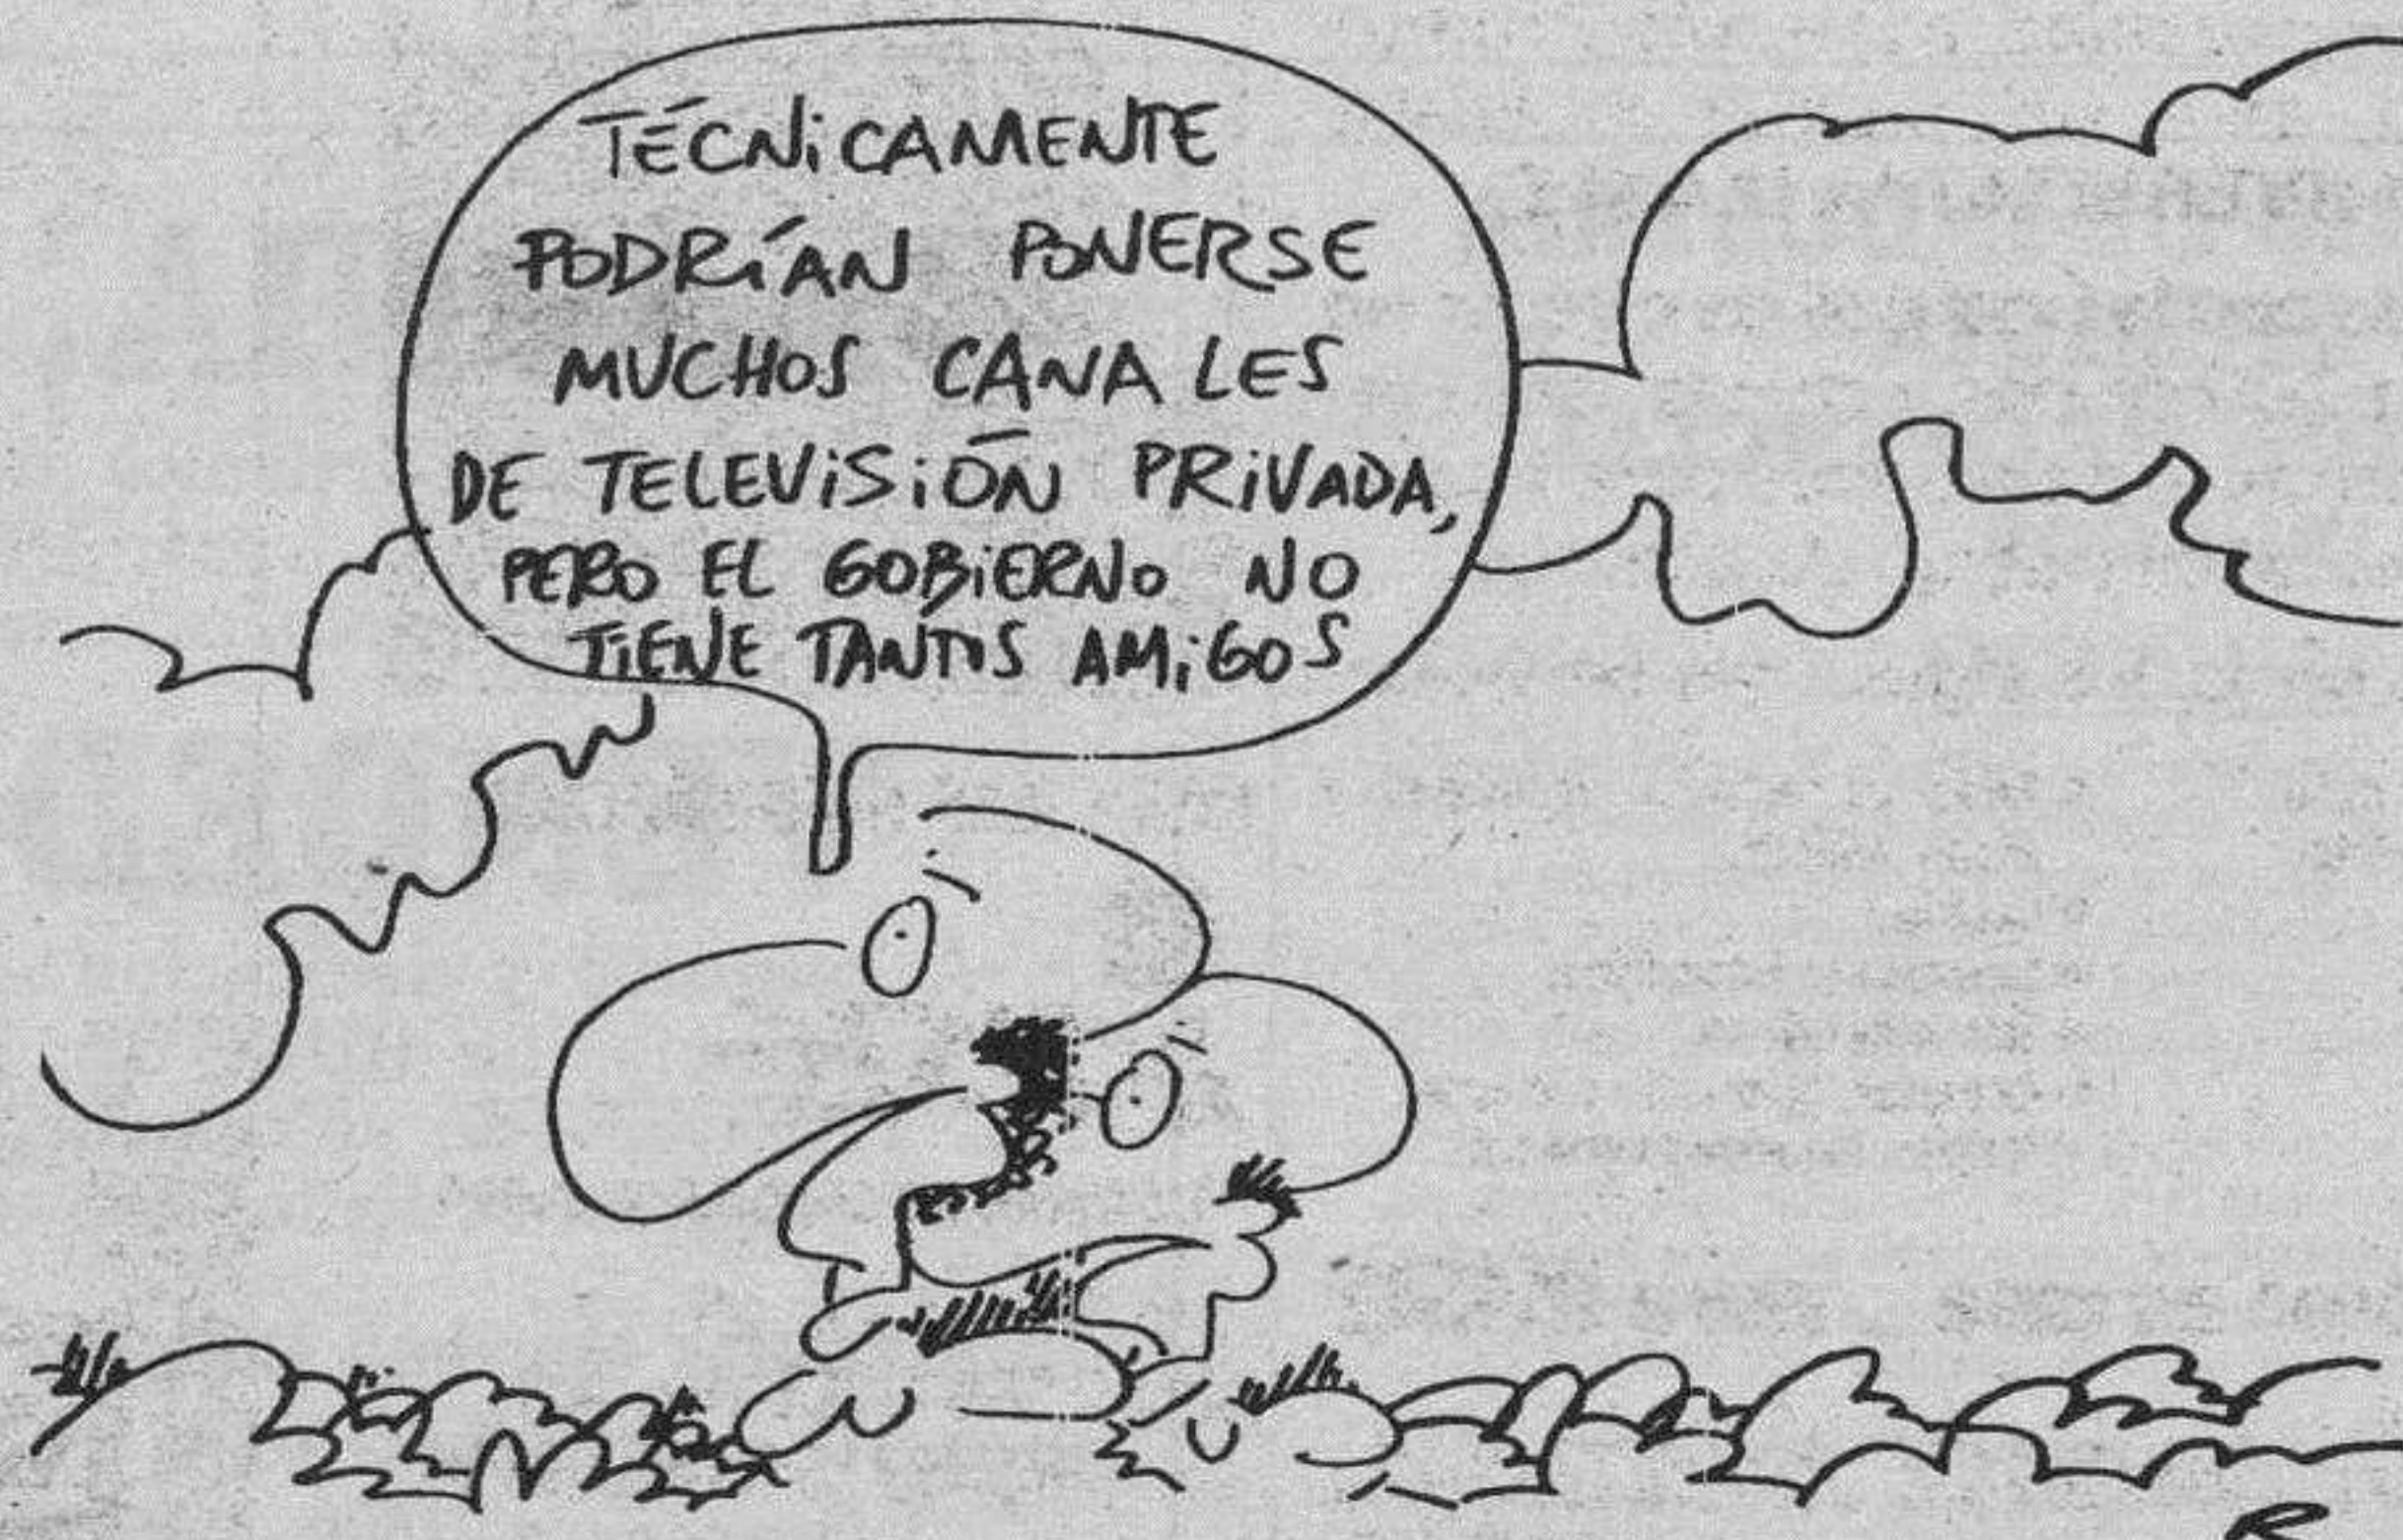 TÉCNiCAMENTE
PODRÍAN PONERSE
MUCHOS CANALES
DE TELEViSiÓN PRiVADA,
PERO EL GOBiERNO NO
TiENE TANTOS AMiGOS